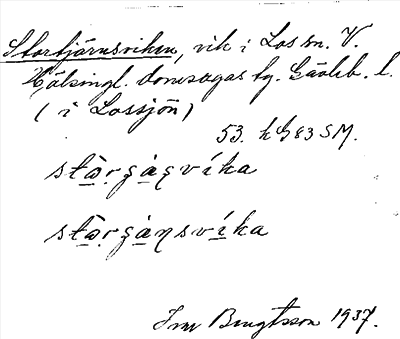 Stortjärnsviken, vik i Los sn. V.
Hälsingl. domsagas tg. Gävleb. l.
(i Lossjön)
53. h G 83 SM.
stò̱rgá̱gvíka
stò̱rgá̱ŋsví̱ka
Ivar Bengtsson 1937.